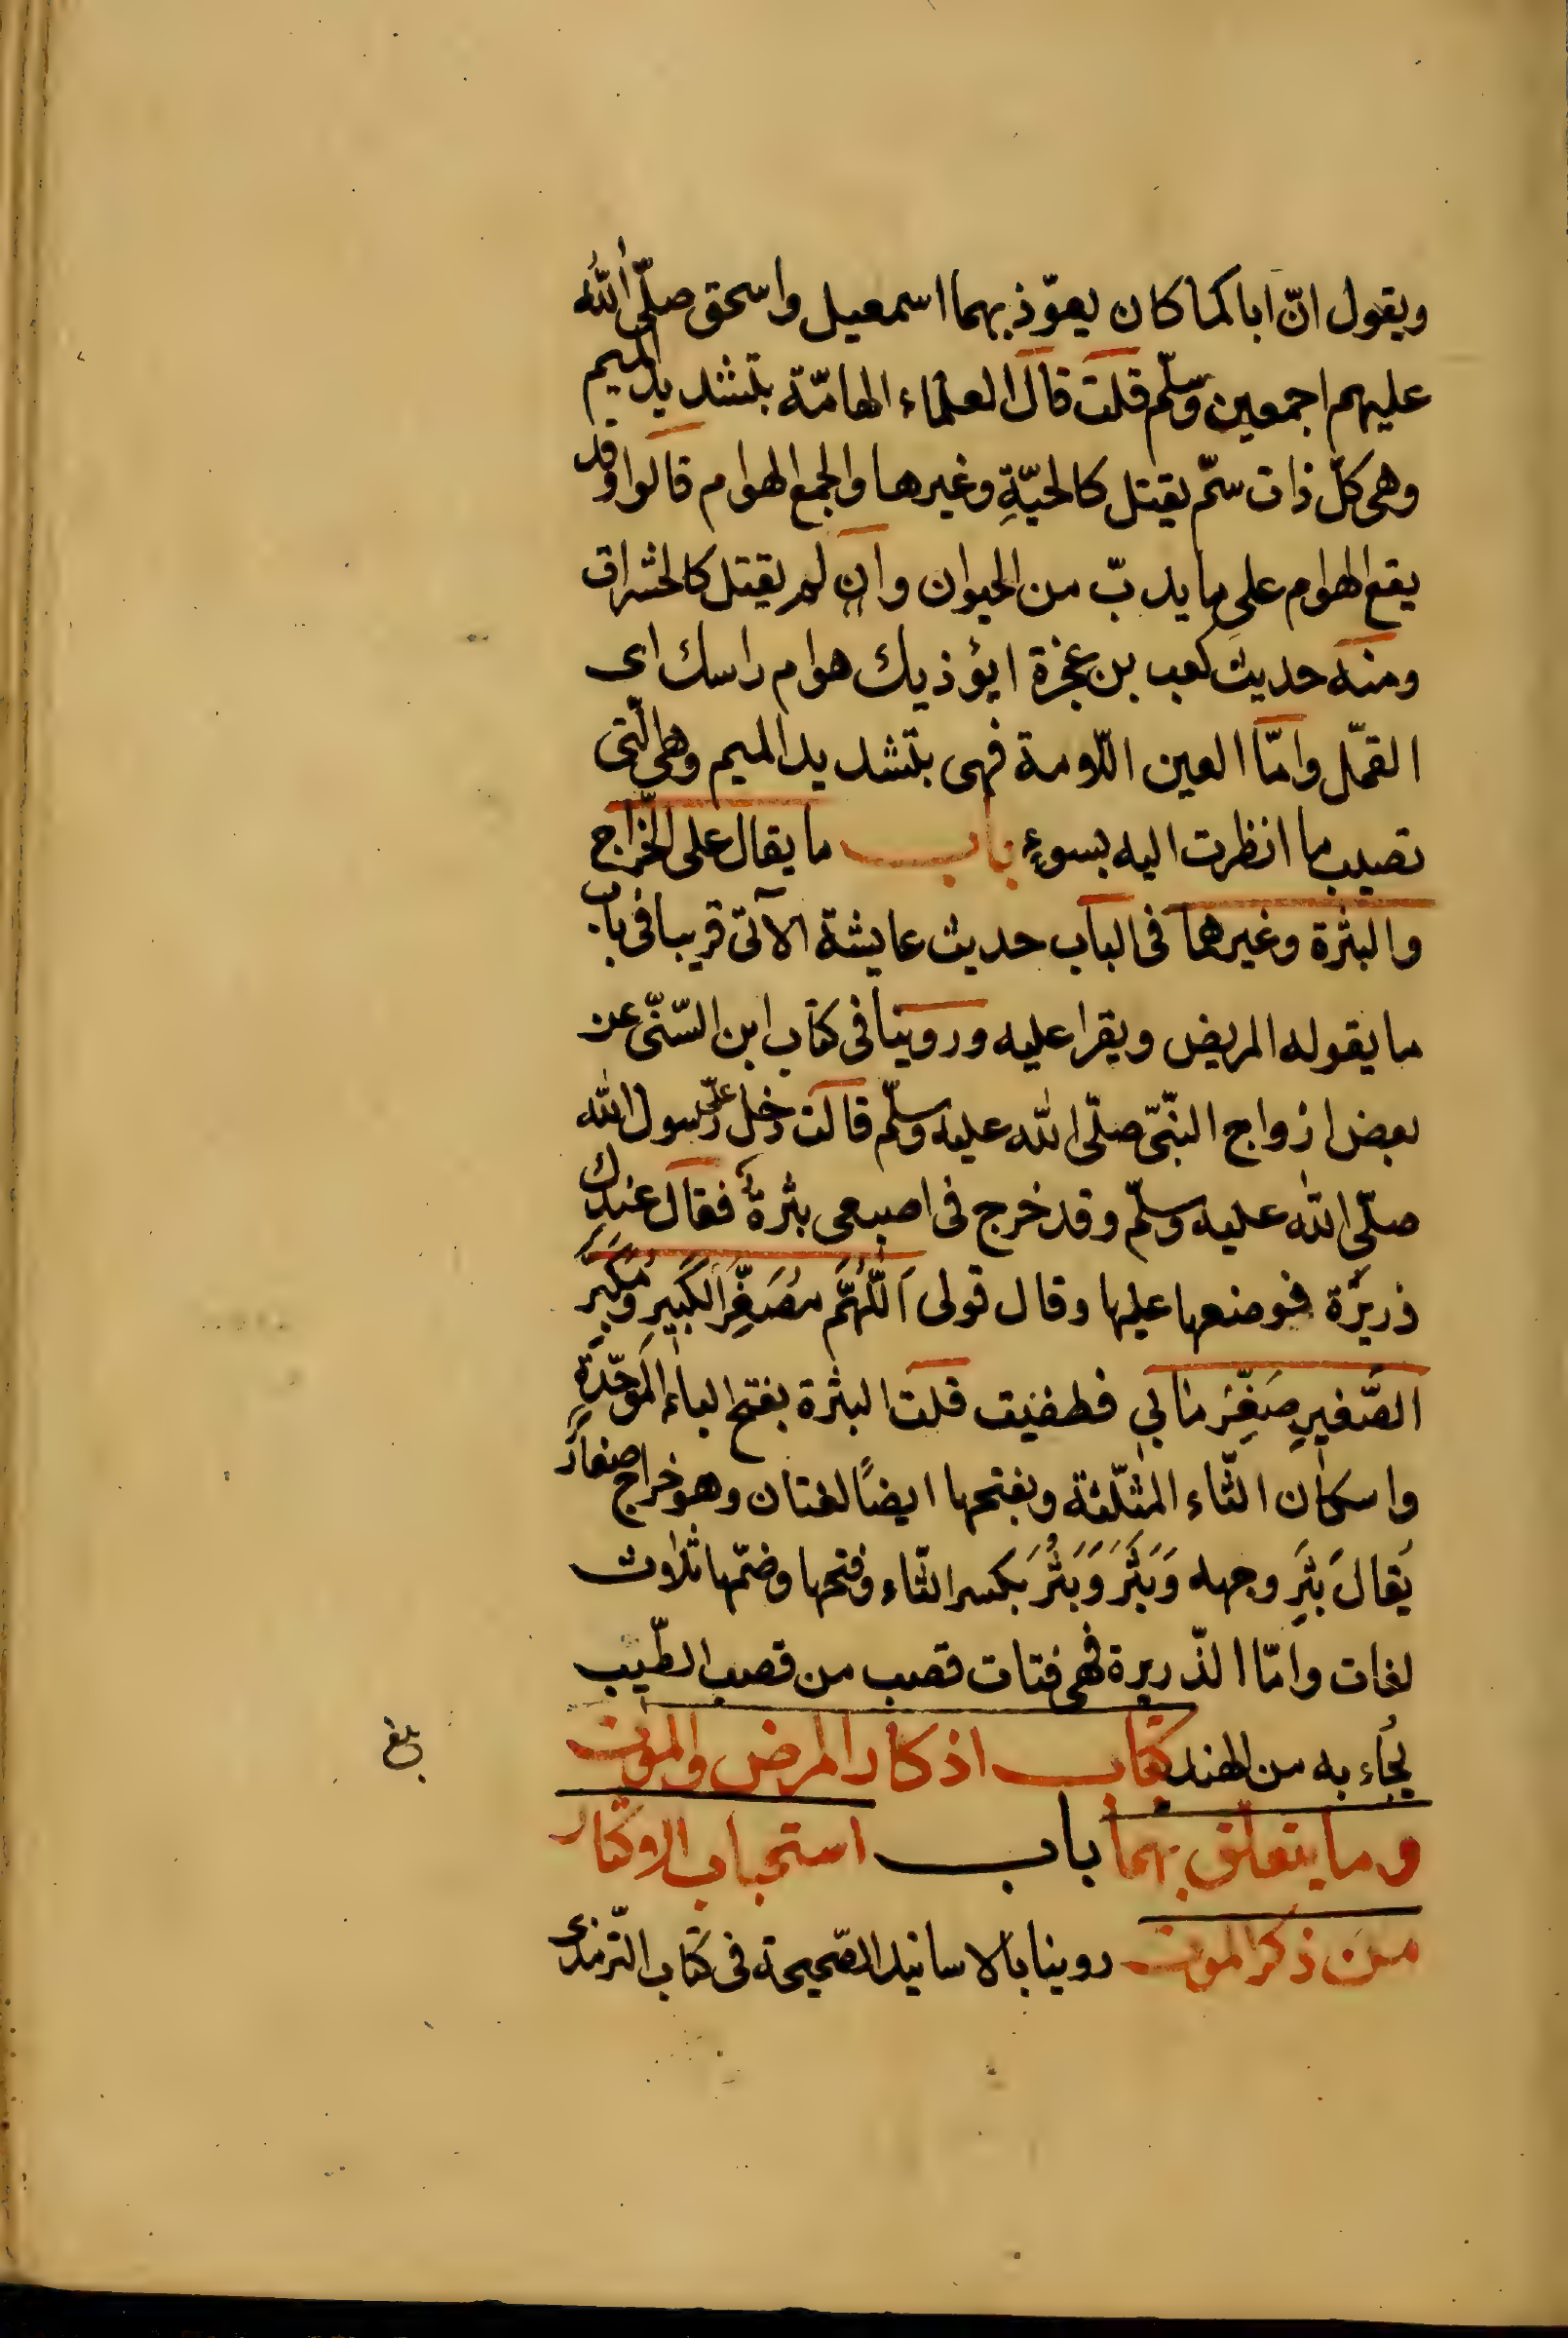 ويقول انّ اباكما كان يعوّذ بهما اسمعيل واسحق صلّى الله
عليهم اجمعين وسلّم قلت قال العلماء الهامّة بتشديد الميم
وهى كلّ ذات سمّ يقتل كالحيّةِ وغيرها والجمع الهوام قالوا وقد
يقع الهوام على ما يدبّ من الحيوان وان لم يقتل كالحشرات
ومنه حديث كعب بن عجرة ايؤذيك هوام راسك اى
القمّل وامّا العين اللّامة فهى بتشديد الميم وهى الّتى
تصيب ما انظرت اليه بسوءٍ باب ما يقال على الخُرّاج
والبثرة وغيرهما فى الباب حديث عايشة الآتى قريبا فى باب
ما يقوله المريض ويقرا عليه وروينا فى كتاب ابن السّنّى عن
بعض ازواج النبّىّ صلّى الله عليه وسلّم قالت دخل علىّ رسول الله
صلّى الله عليه وسلّم وقد خرج فى اصبعى بثرةٌ فقال عندكِ
ذريرة فوضعها عليها وقال قولى اَللّهُمَّ مُصَغِّرَ الكَبِيرِ وَمُكَبِّرَ
الصَّغيرِ صَغِّرْ مَا بِي فطفئت قلت البثرة بفتح الباء الموحّدةِ
واسكان الثّاء المثلّثة وبفتحها ايضًا لغتان وهو خراج صغارٌ
يُقالَ بَثِرَ وجهه وَبَثَرَ وَبَثُرَ بكسر الثّاء وفتحها وضمّها ثلاث
لغات وامّا الذّريرة فهى فتات قصب من قصب الطّيب
يُجاء به من الهند كتاب اذكار المرض والموت
بلغ
وما يتعلق بهما باب استحباب الاكثار
من ذكر الموت روينا بالاسانيد الصّحيحة فى كتاب التّرمذى